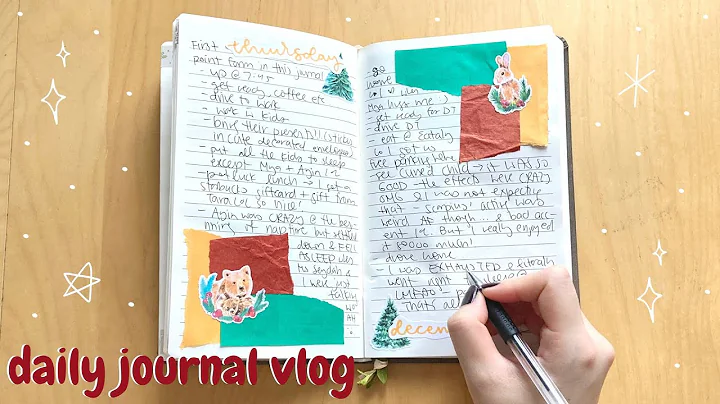 First thursday
point form in this journal
- up @ 7:45
- get ready, coffee etc
- drive to work
- work w kids
- bring their presents!! (stickers
in cute decorated envelopes)
- put all the kids to sleep
except Mya + Azin 1-2
- potluck lunch → I got a
starbucks giftcard + gift from
Tara (2) so nice!
- Azin was CRAZY @ the beg-
inning of naptime but settled
down & FELL
ASLEEP when
his
& I were just
talking
AH
- go
home
Mya hugs me :)
get ready for DT
- drive DT
- eat @ Eataly
free parking here
see Cursed child → it WAS SO
GOOD - the effects were CRAZY
OMG & I was not expecting
that - scorpius' actor was
weird AF though... & bad acc-
ent. But I really enjoyed
it soooo much!
drove home
- I was EXHAUSTED & literally
went right to sleep @
LMFAO!
That's all
decem
daily journal vlog